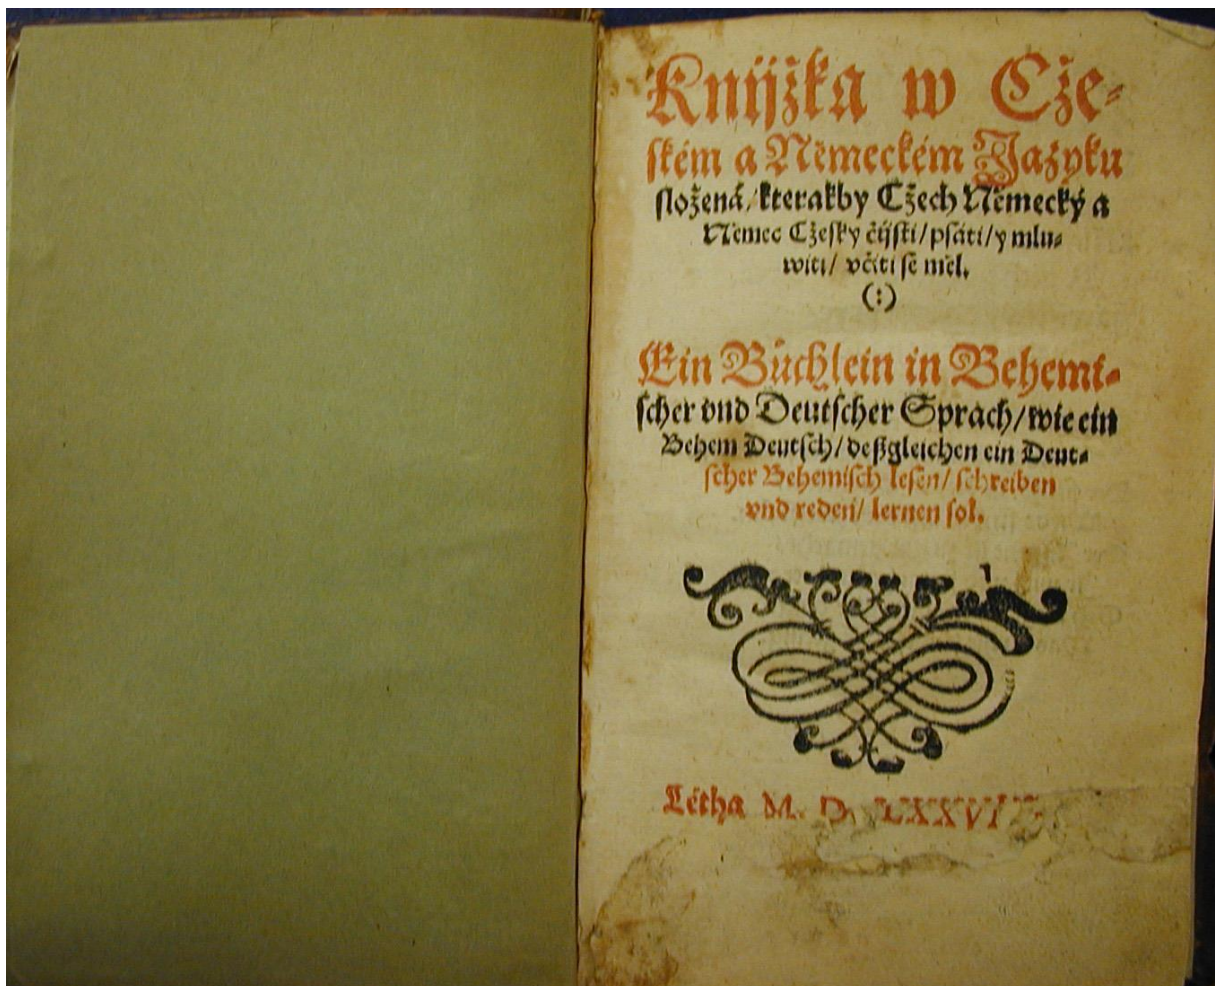 Knijžka w Cže-
ském a Německém Jazyku
složená / kterakby Cžech Německý a
Němec Cžesky čijsti / psáti / y mlu-
witi / včiti se měl.
(:)
Ein Büchlein in Behemi-
scher vnd Deutscher Sprach / wie ein
Behem Deutsch / deßgleichen ein Deut-
scher Behemisch lesen / schreiben
vnd reden / lernen sol.
Létha M. D. LXXVI